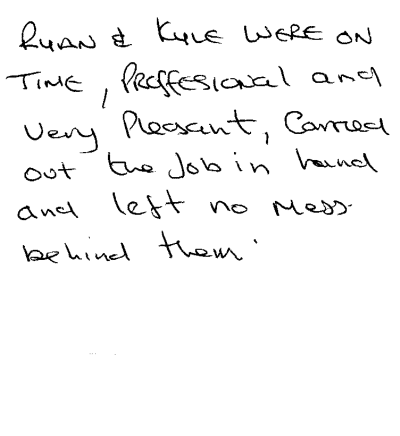 RYAN & KYLE WERE ON
TIME, PROFFESIONAl and
Very Pleasant, Carried
out the Job in hand
and left no Mess
behind them.